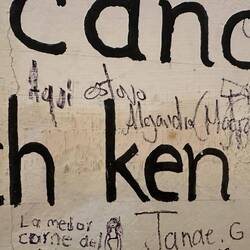 Canc
Aqui estovo
Alejandra (Magg
ch ken
La mejor
carne del
Janae. G